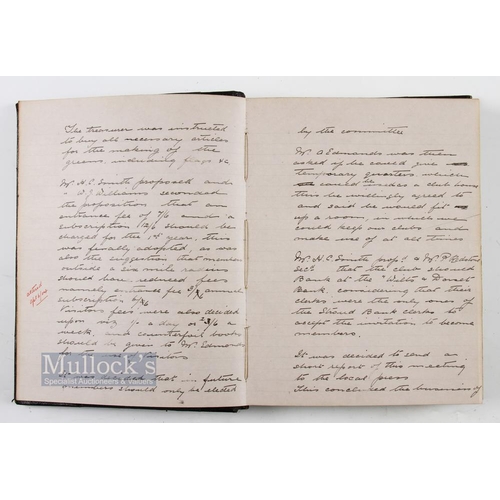 The treasurer was instructed
to buy all necessary articles
for the making of the
greens, including flags &c
Mr H.C. Smith proposed and
W.J. Williams seconded
the proposition that an
entrance fee of 7/6 and a
subscription 12/6 should be
charged for the 1st year, this
was finally adopted, as was
also the suggestion that members
outside a radius should
have reduced fees
namely entrance fee annual
subscription
Visitors fees were also decided
upon viz 1/- a day or 3/6 a
week, and counterfoil book
should be given to Mr Edmonds
for visitors
Mullock's
Specialist Auctioneers & Valuers
that in future
members should only be elected
by the committee
Mr Edmonds was then
asked if he could give
temporary quarters which
could be made a club house
this he willingly agreed to
and said he would fit
up a room, in which men
could keep our clubs and
make use of at all times
Mr H.C. Smith prop. & Mr P.
that the club should
Bank at the "Wilts & Dorset
Bank, considering that their
clerks were the only ones of
the Stroud Bank clerks to
accept the invitation to become
members.
It was decided to send an
short report of this meeting
to the local press
This concluded the business of